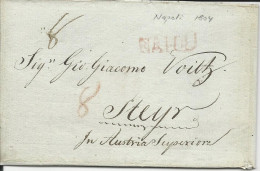 Napoli 1804
8
NAPOLI
Sig.r Gio. Giacomo Voith
8
Steyr
In Austria Superiore